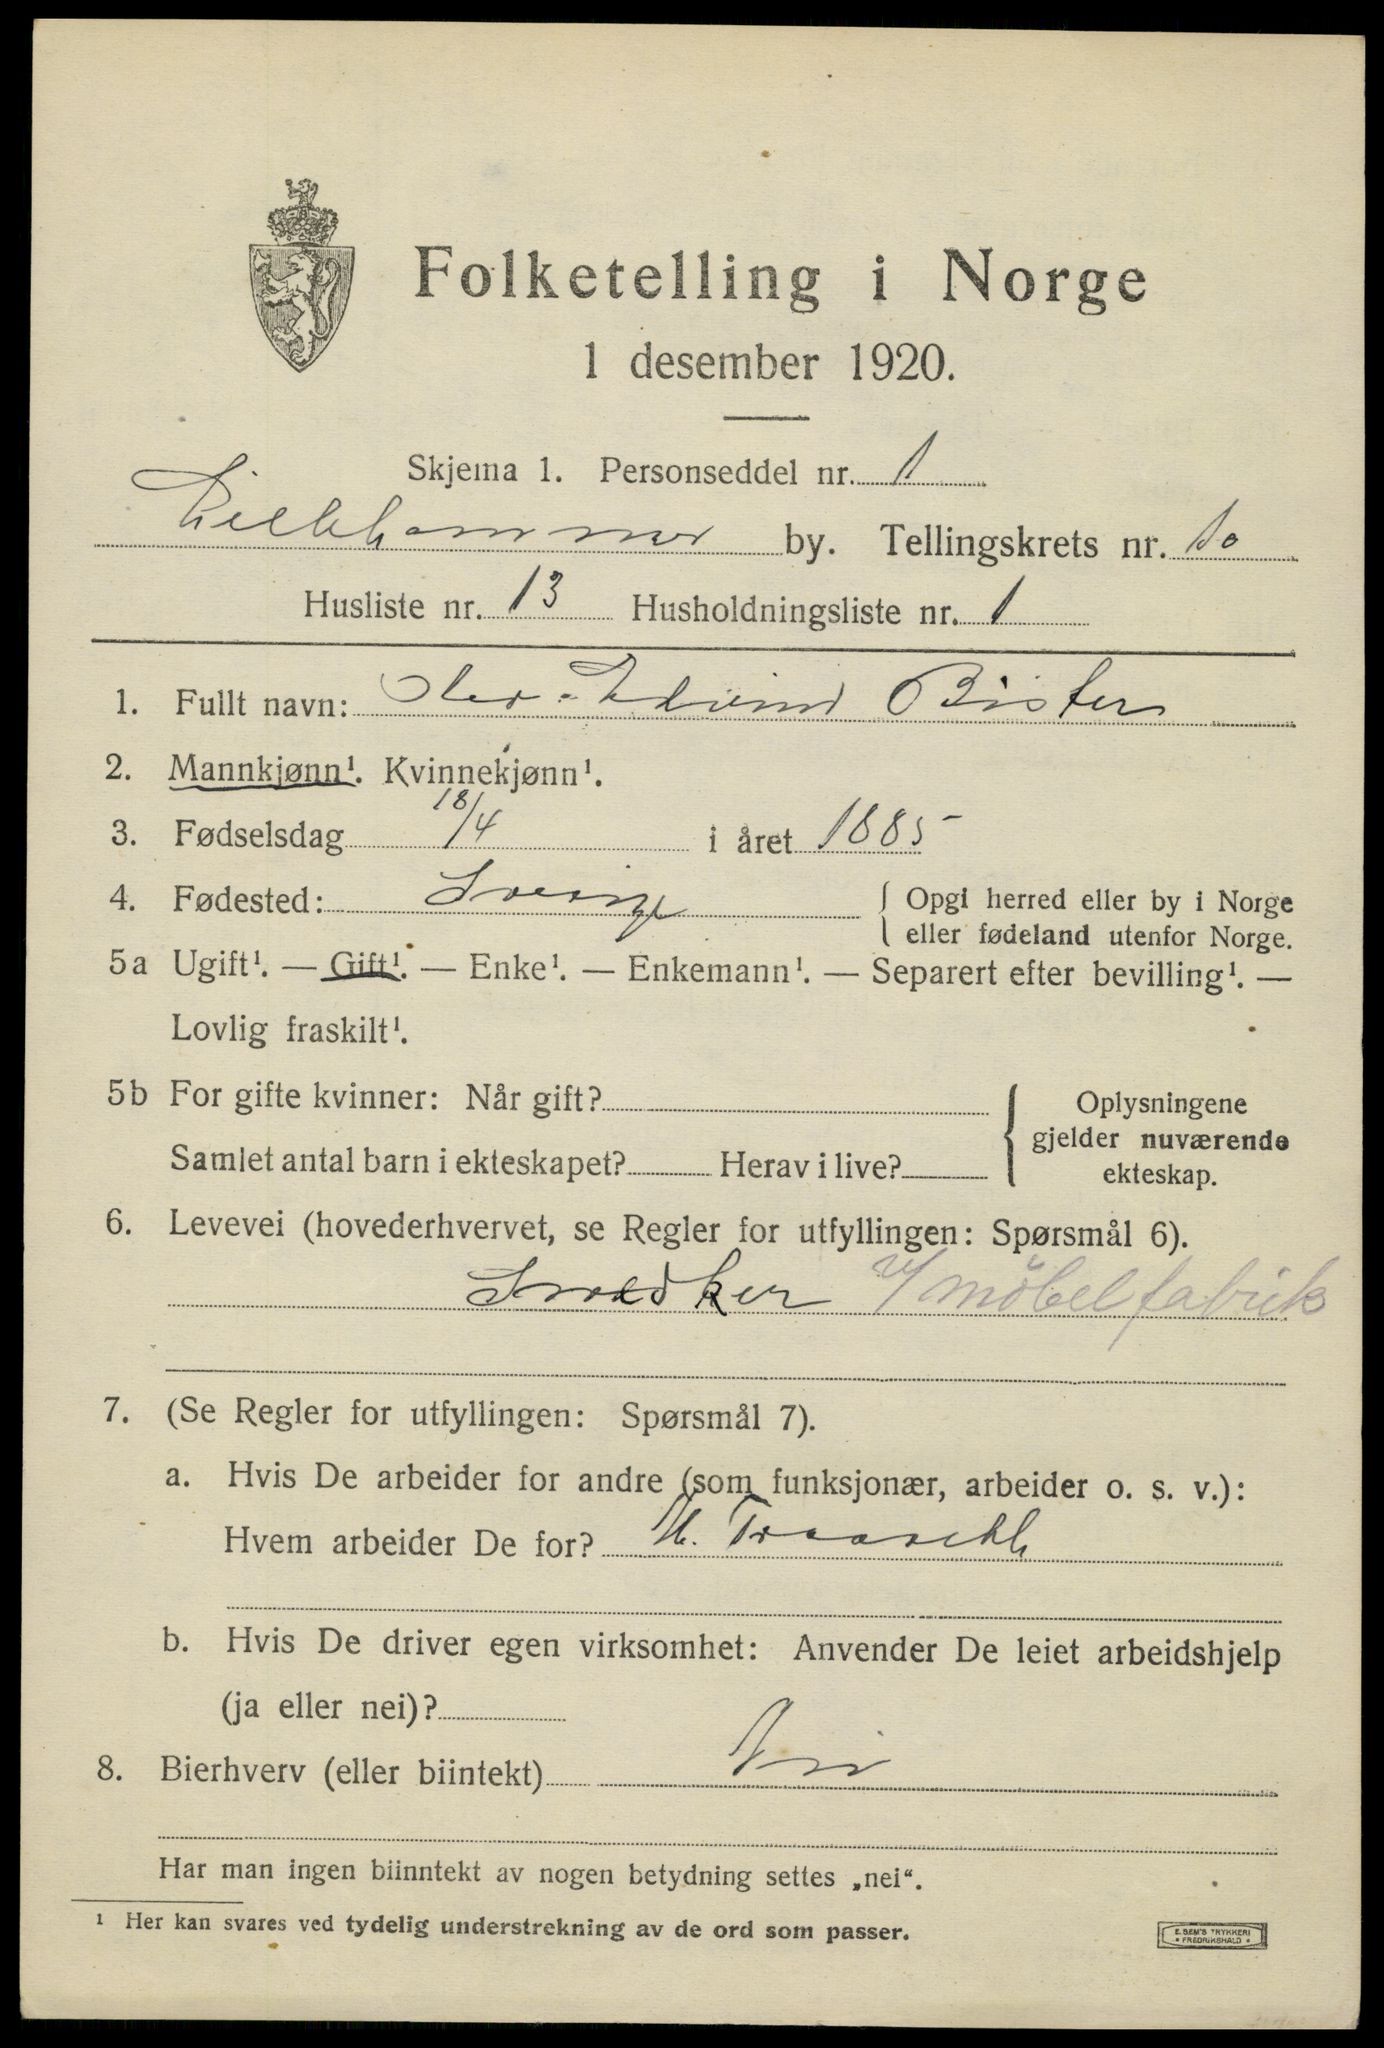 Folketelling i Norge
1 desember 1920.
Skjema 1. Personseddel nr. 1
Lillehammer by. Tellingskrets nr. 10
Husliste nr. 13 Husholdningsliste nr. 1
1. Fullt navn: Edvind Bister
2. Mannkjønn¹. Kvinnekjønn¹.
3. Fødselsdag 18/4 i året 1885
4. Fødested: Sverige { Opgi herred eller by i Norge
eller fødeland utenfor Norge.
5a Ugift¹. — Gift¹. — Enke¹. — Enkemann¹. — Separert efter bevilling¹. —
Lovlig fraskilt¹.
5b For gifte kvinner: Når gift?
Samlet antal barn i ekteskapet? Herav i live?
Oplysningene
gjelder nuværende
ekteskap.
6. Levevei (hovederhvervet, se Regler for utfyllingen: Spørsmål 6).
Snedker v/ möbelfabrik
7. (Se Regler for utfyllingen: Spørsmål 7).
a. Hvis De arbeider for andre (som funksjonær, arbeider o. s. v.):
Hvem arbeider De for?
b. Hvis De driver egen virksomhet: Anvender De leiet arbeidshjelp
(ja eller nei)?
8. Bierhverv (eller biintekt) Nei
Har man ingen biinntekt av nogen betydning settes „nei“.
¹ Her kan svares ved tydelig understrekning av de ord som passer.
E. SEM'S TRYKKERI
• FREDRIKSHALD •